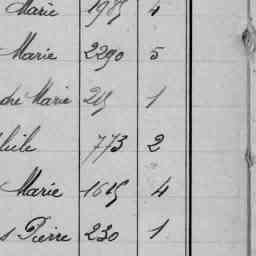 Marie 1985 4
Marie 2290 5
Marie 215 1
773 2
Marie 1615 4
s Pierre 230 1